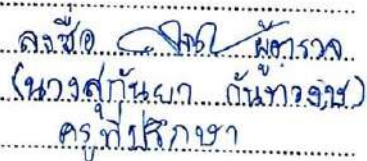 ลงชื่อ ผู้ตรวจ
(นางสุกันยา กันทวงษ์)
ครูที่ปรึกษา